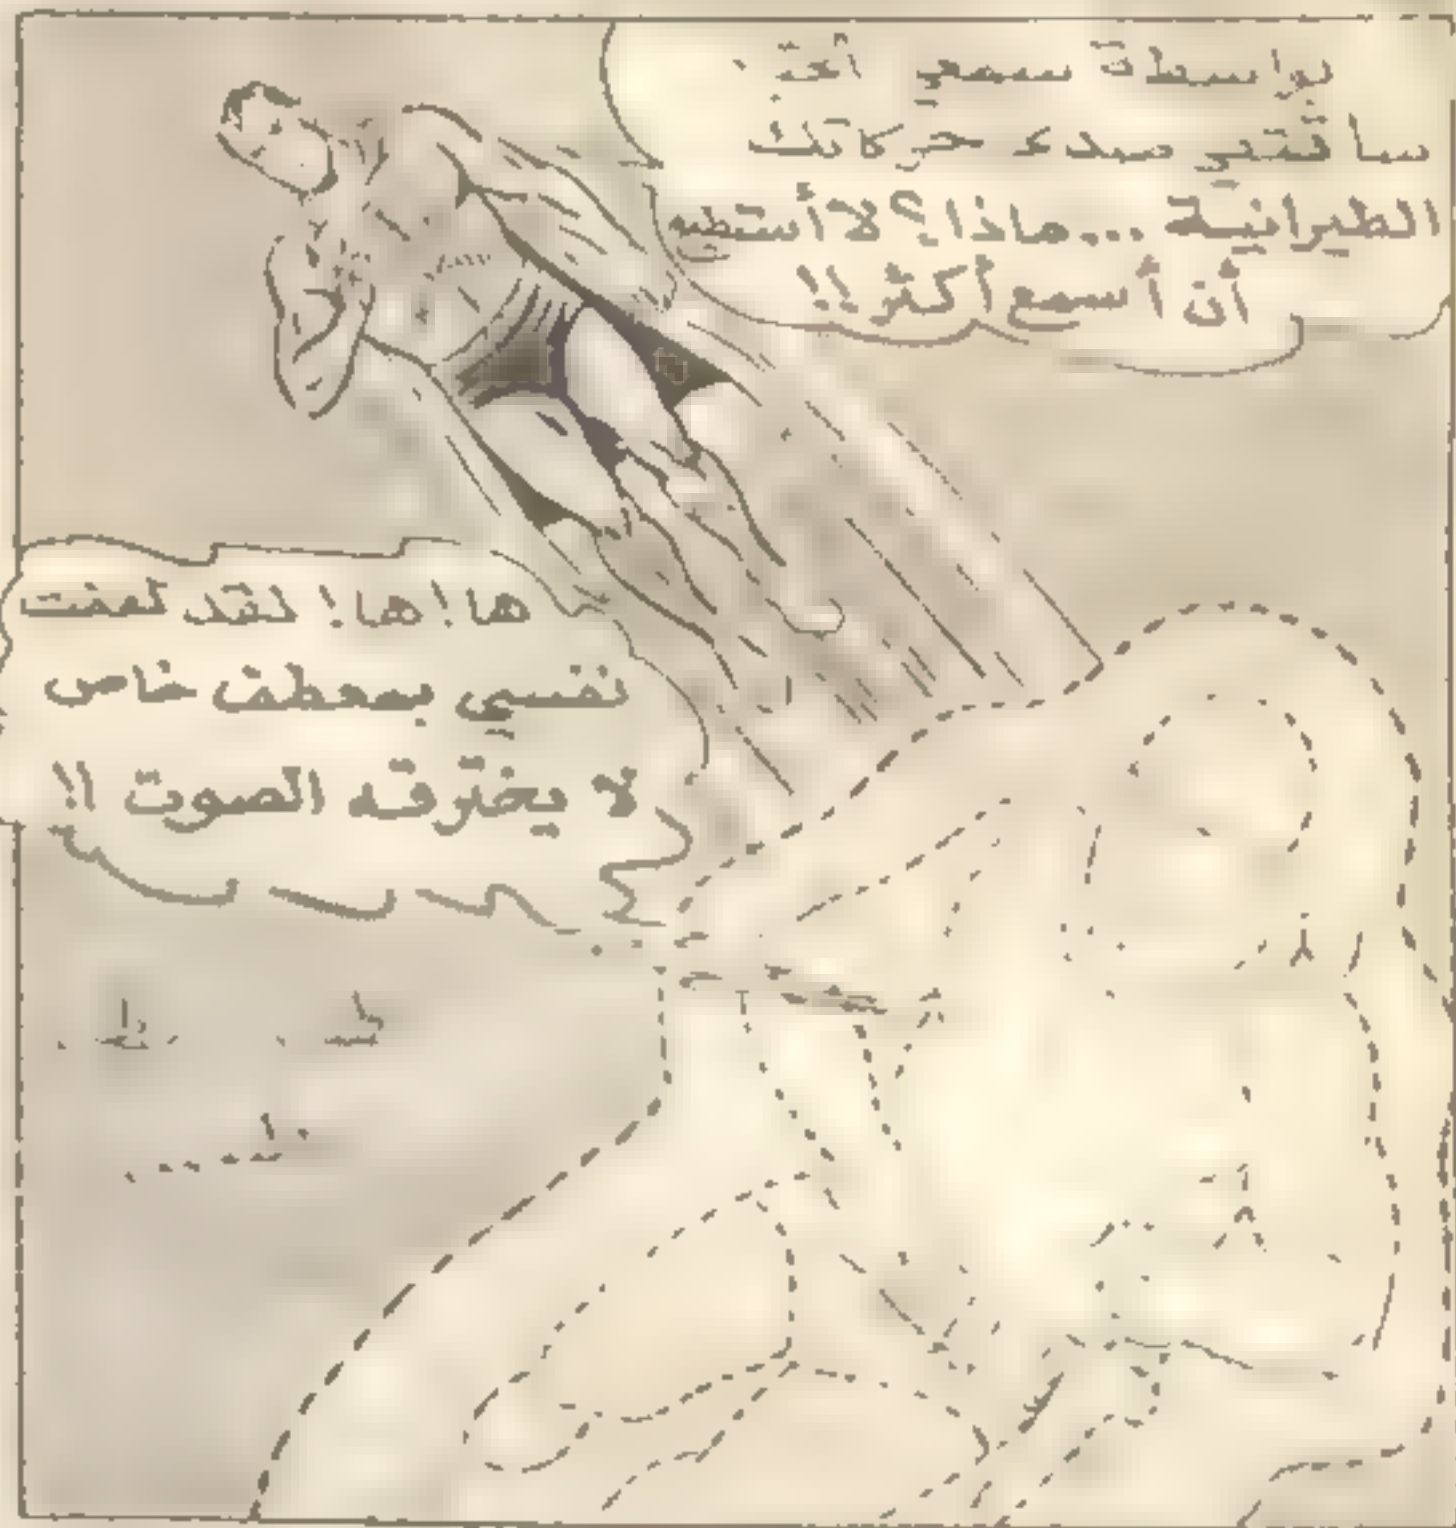 بواسطة سمعي أعتـ
سأقتفي صدى حركاتك
الطيرانية ...ماذا؟ لا أستطيع
أن أسمع أكثر!!
ها! ها! لقد لففت
نفسي بمعطف خاص
لا يخترقه الصوت !!